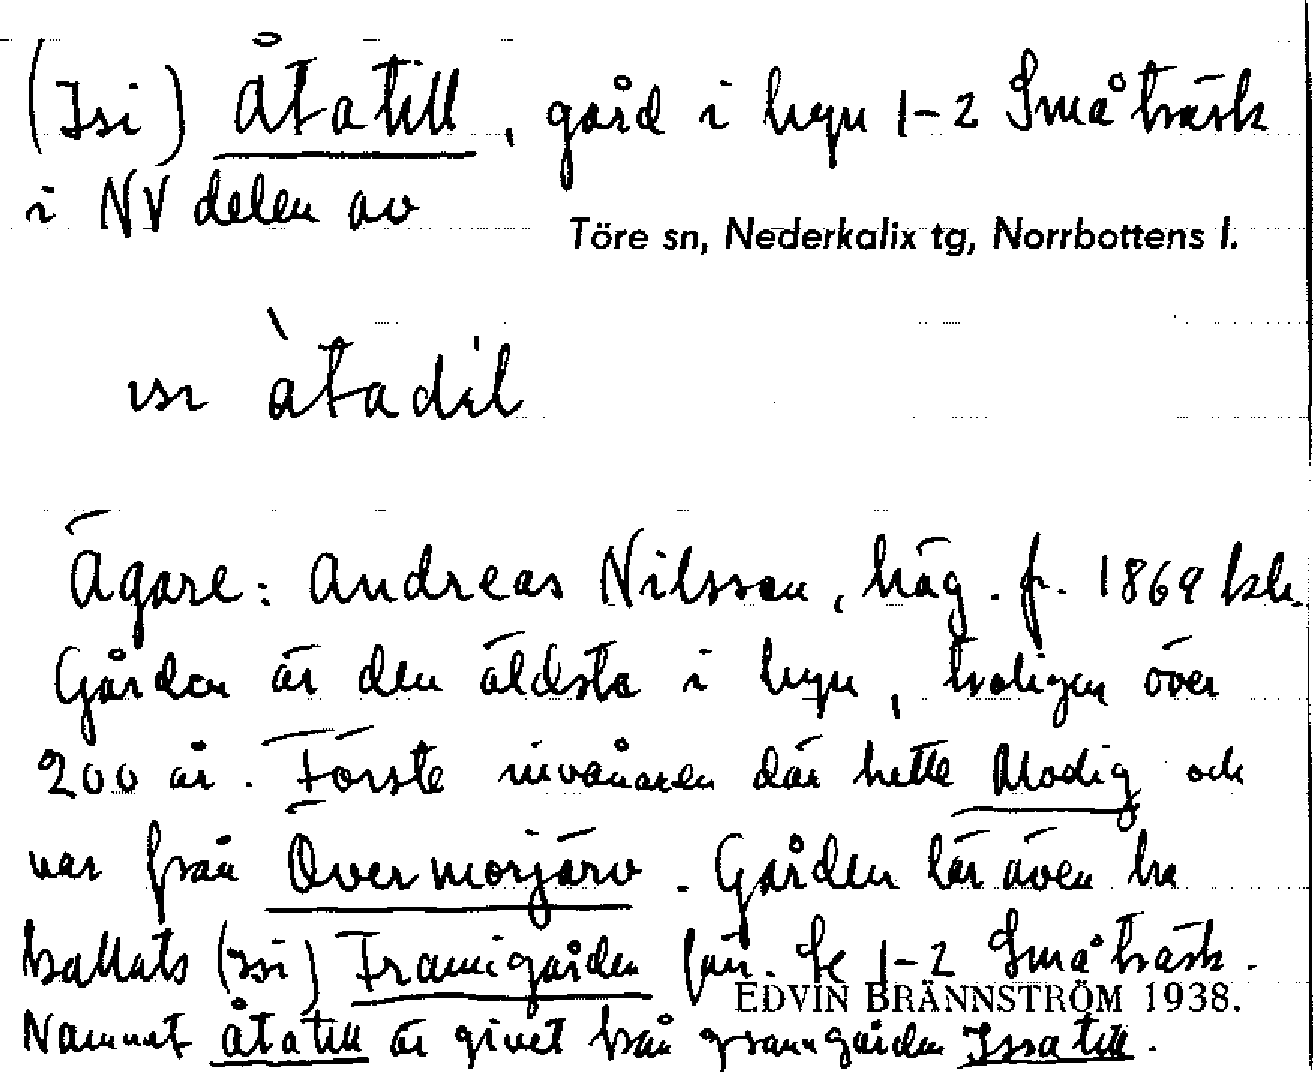 (Isi) Åtatill, gård i byn 1-2 Småträsk
i NV delen av
Töre sn, Nederkalix tg, Norrbottens l.
ısı àtadil
Ägare: Andreas Nilsson, häg. fr. 1869 bk.
Gården är den äldsta i byn, troligen över
200 år. Förste invånaren där hette Modig och
var från Övermorjärv. Gården lär även ha
kallats (isi) Framigården förr. Se 1-2 Småträsk.
EDVIN BRÄNNSTRÖM 1938.
Namnet Åtatill är givet från granngården Issatill.